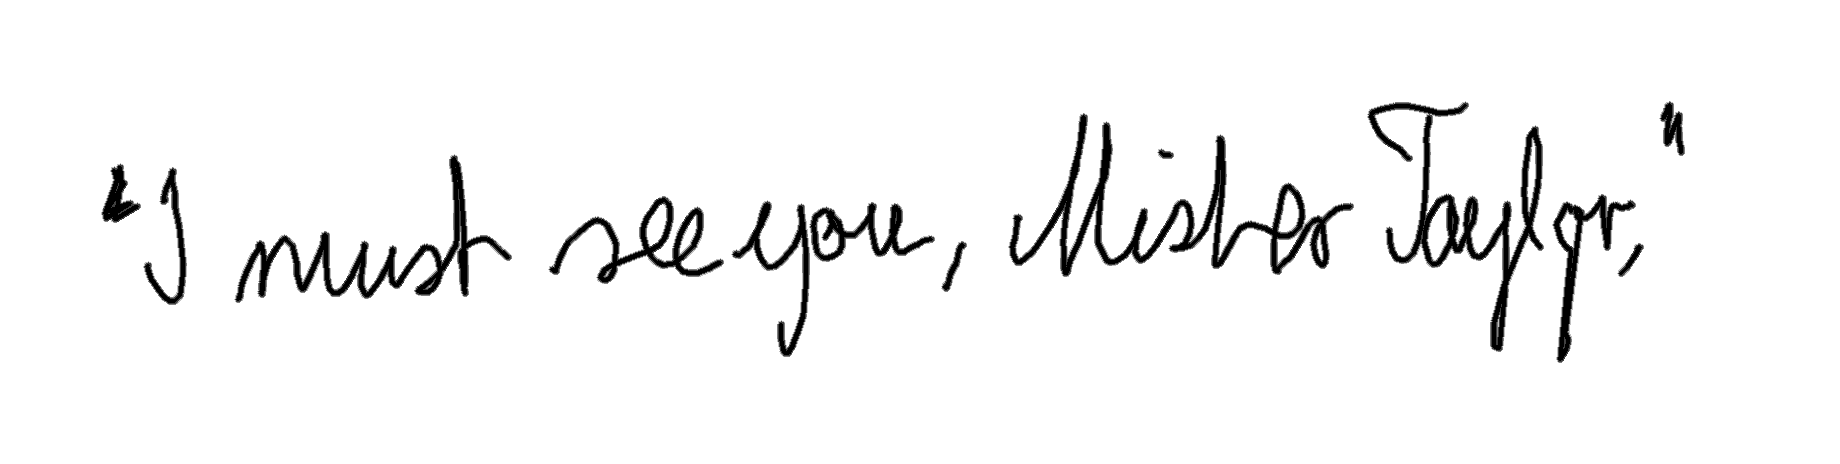 "I must see you, Mister Taylor,"